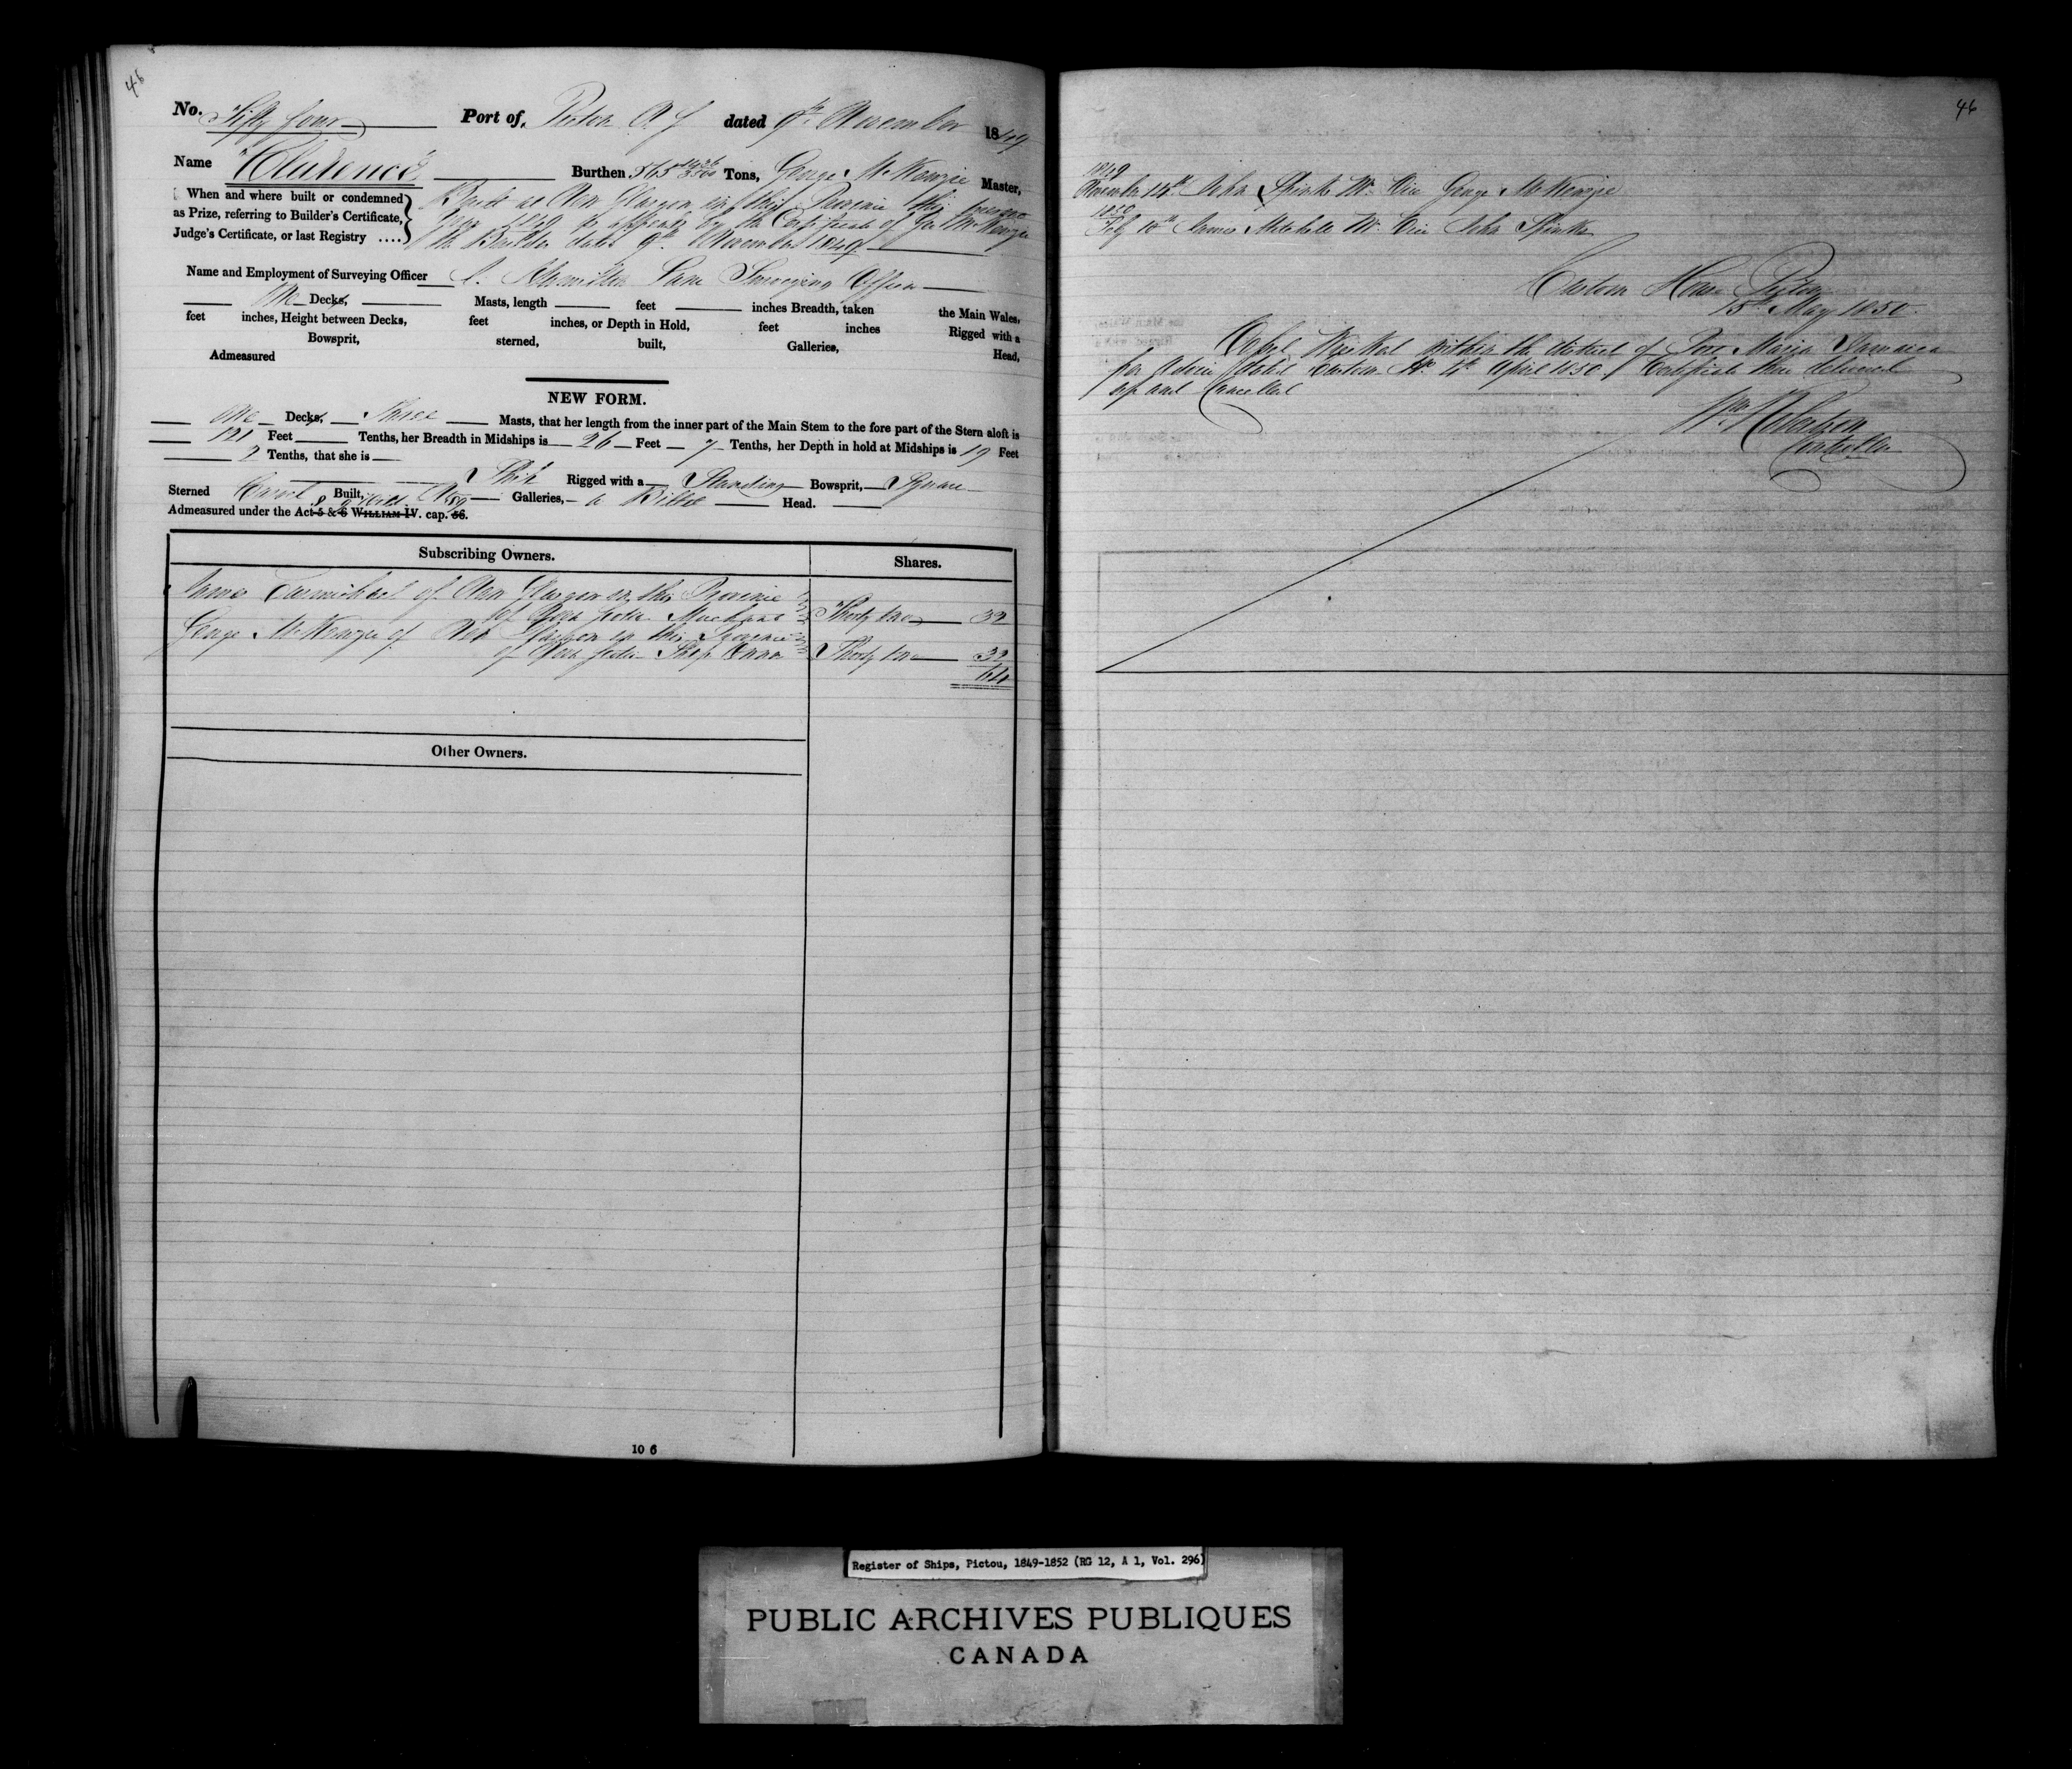 46
No. Fifty four Port of Pictou N. S. dated 9th November 1849
Name "Clutence" Burthen 565 1436/3500 Tons, George McKenzie Master,
When and where built or condemned
as Prize, referring to Builder's Certificate,
Judge's Certificate, or last Registry ....
Built at New Glasgow in this Province this present
Year 1849 as appears by the Certificate of Geo McKenzie
the Builder dated 9th November 1849
Name and Employment of Surveying Officer Surveying Officer
One Decks, Masts, length feet inches Breadth, taken the Main Wales,
feet inches, Height between Decks, feet inches, or Depth in Hold, feet inches Rigged with a
Bowsprit, sterned, built, Galleries, Head,
Admeasured
NEW FORM.
One Decks, Three Masts, that her length from the inner part of the Main Stem to the fore part of the Stern aloft is
121 Feet Tenths, her Breadth in Midships is 26 Feet 7 Tenths, her Depth in hold at Midships is 19 Feet
2 Tenths, that she is
Ship Rigged with a Standing Bowsprit, Square
Sterned Carvel Built, No Galleries, a Billet Head.
Admeasured under the Act 5 & 6 WILLIAM IV. cap. 56.
8 & 9 Vict 89
Subscribing Owners. Shares.
James Carmichael of New Glasgow in this Province
of Nova Scotia Merchant Thirty two 32
George McKenzie of New Glasgow in this Province
of Nova Scotia Ship Owner Thirty two 32
64
Other Owners.
10 6
46
1849
November 14th John Spinks Mr. Vice George McKenzie
1850
Feby 10th James Mitchell Mr. Vice John Spinks
Custom House Pictou
15th May 1850.
Vessel Wrecked within the district of Port Maria Jamaica
per Advice dated Custom Ho. 4th April 1850. Certificate then delivered
up and Cancelled
Wm Robertson
Controller
Register of Ships, Pictou, 1849-1852 (RG 12, A 1, Vol. 296)
PUBLIC ARCHIVES PUBLIQUES
CANADA